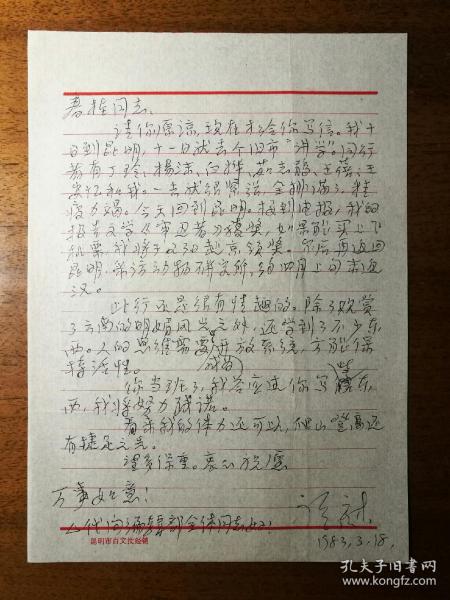 春桂同志:
请你原谅,现在才给你写信。我十
日到昆明,十一日就去个旧市“讲学”。同行
者有丁玲、杨沫、白桦、茹志鹃、王
安忆和我。一去就很紧张,全排满了,精
疲力竭。今天回到昆明。接到电报,我的
报告文学《 》获奖,如果能买上飞
机票,我将于 赴京领奖。尔后再返回
昆明,采访动物研究所,约四月上旬末返
汉。
此行还是很有情趣的。除了欣赏
了云南的明媚风光之外,还学到了不少东
西。人的思维需要开放系统,方能保
持活性。
你当班了,我答应过你写 东
西,我将努力践诺。
看来我的体力还可以,爬山登高还
有捷足之先。
望多保重。衷心祝愿
万事如意!
代问编辑部全体同志好!
1983.3.18.
昆明市百文批经销
孔夫子旧书网
kongfz.com